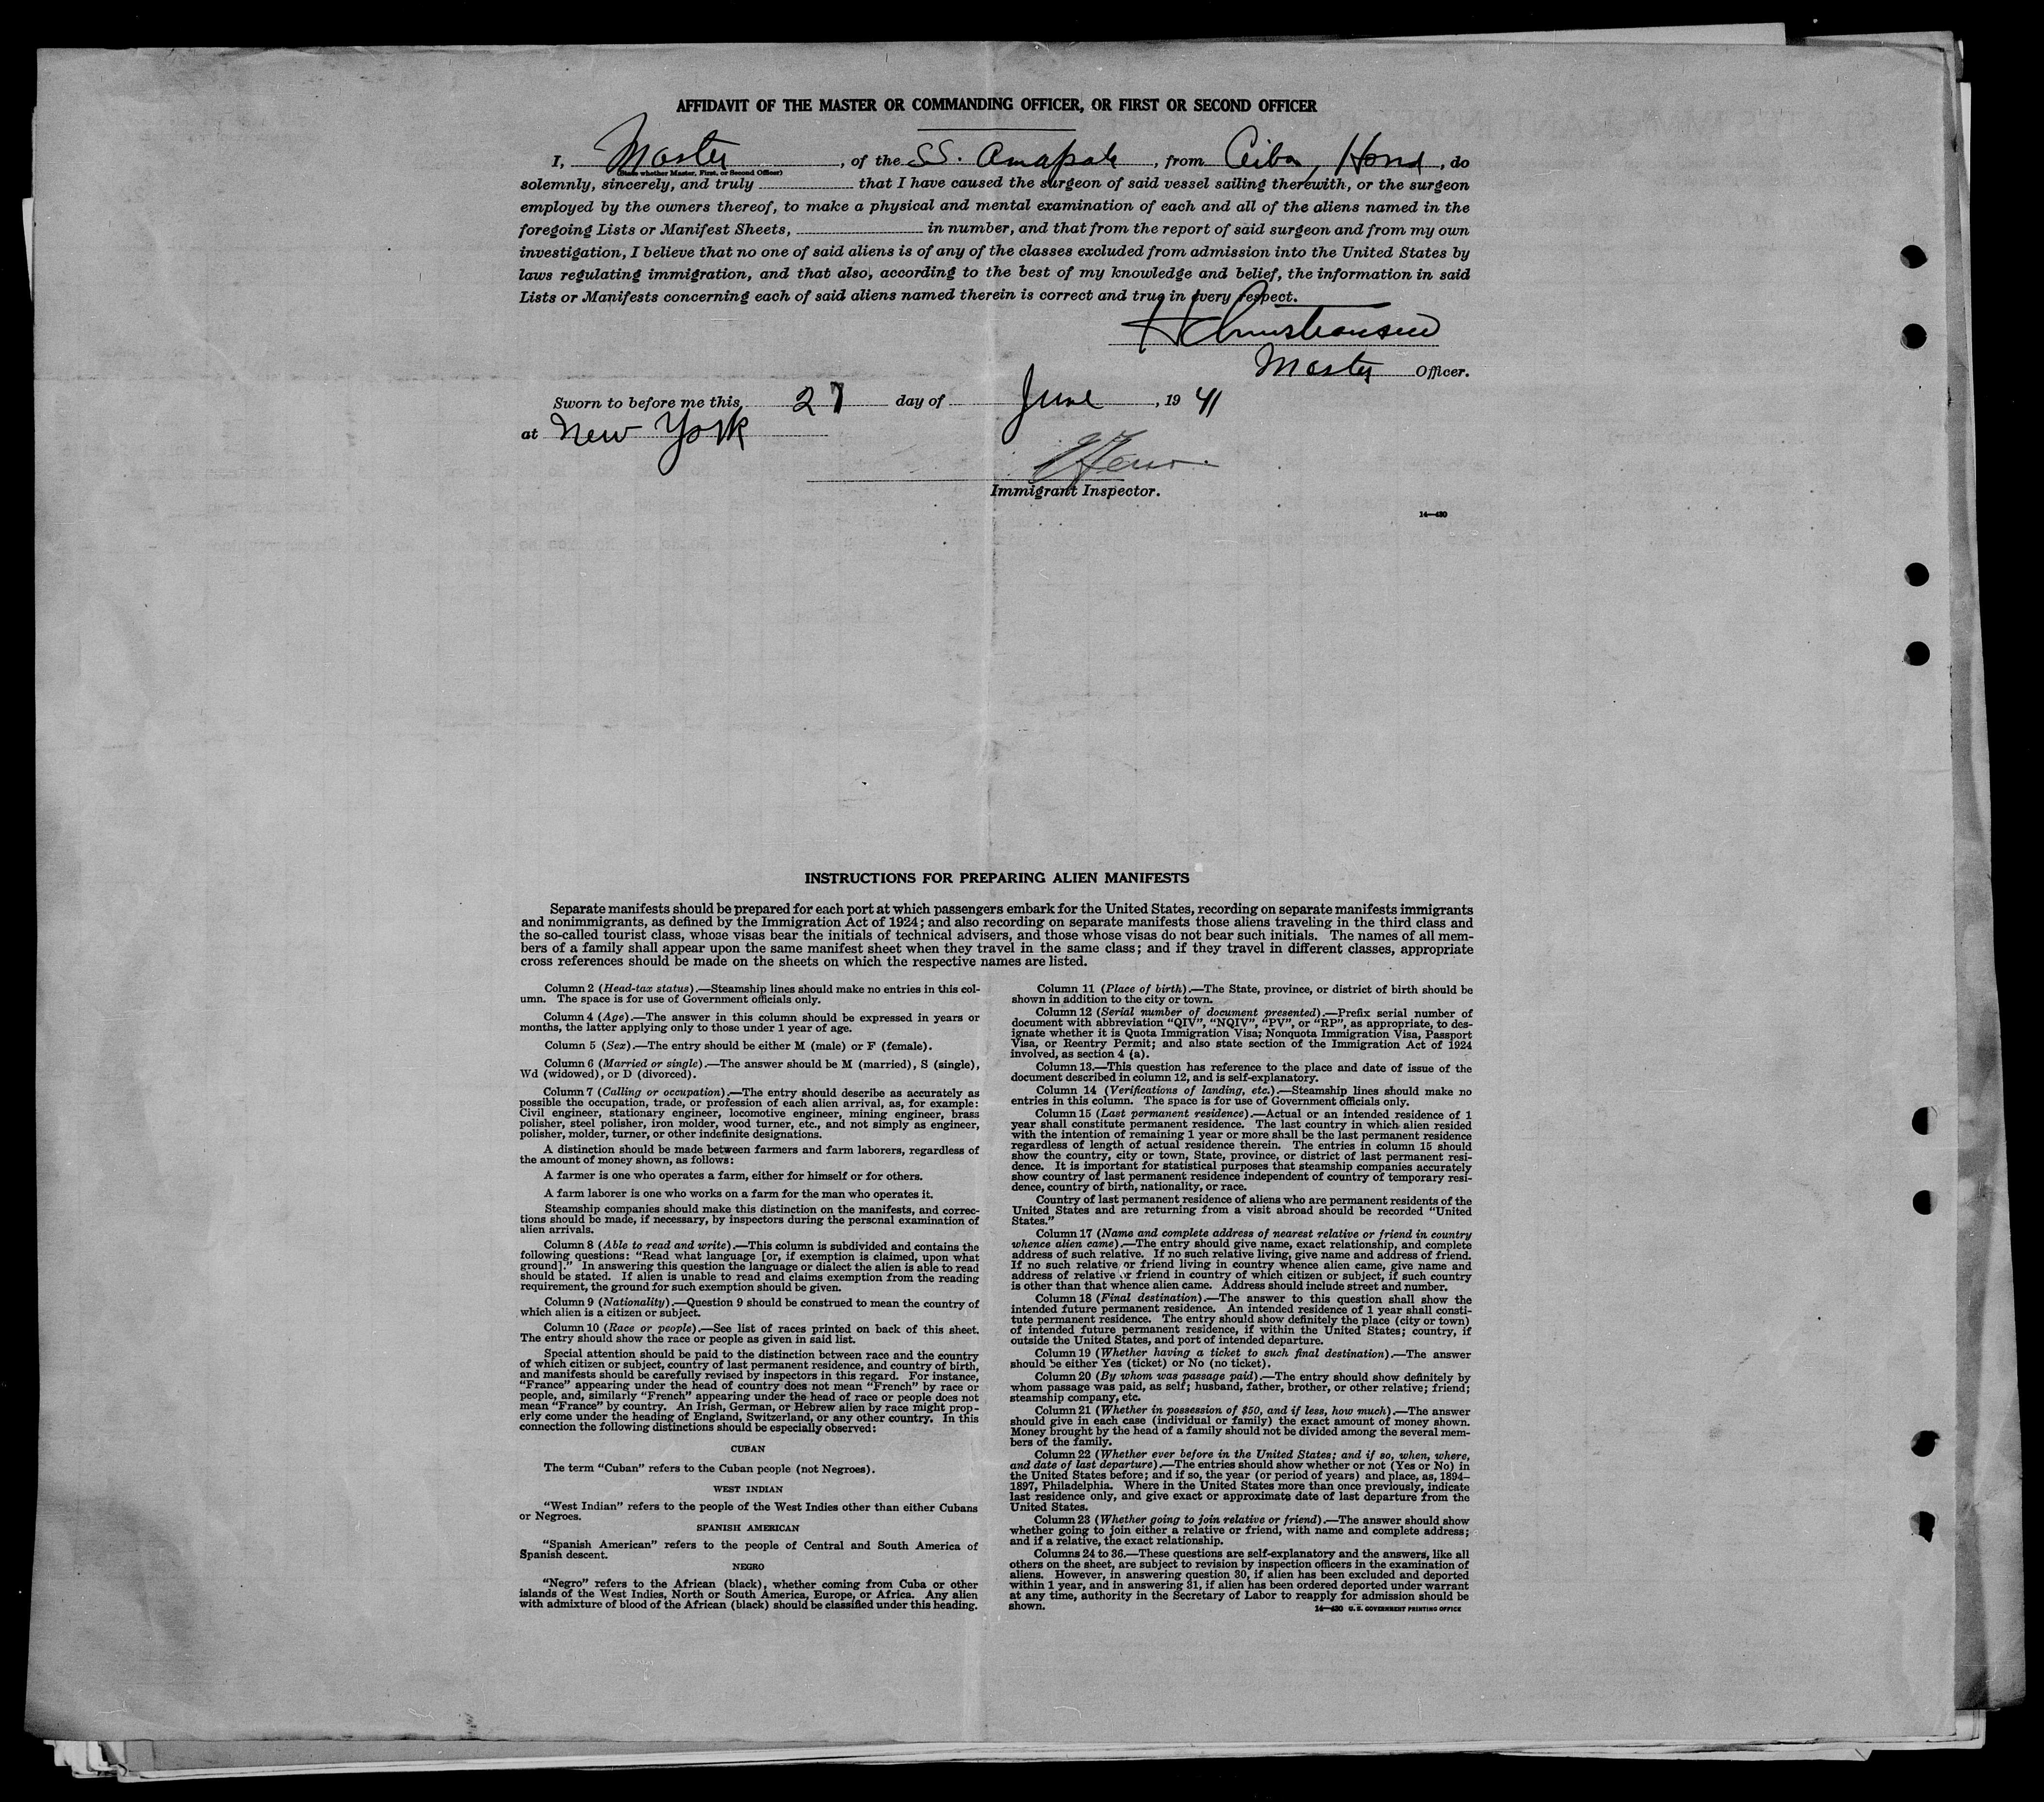 AFFIDAVIT OF THE MASTER OR COMMANDING OFFICER, OR FIRST OR SECOND OFFICER
I, Master, of the SS. Amapala, from Ceiba, Hond, do
(State whether Master, First, or Second Officer)
solemnly, sincerely, and truly that I have caused the surgeon of said vessel sailing therewith, or the surgeon
employed by the owners thereof, to make a physical and mental examination of each and all of the aliens named in the
foregoing Lists or Manifest Sheets, in number, and that from the report of said surgeon and from my own
investigation, I believe that no one of said aliens is of any of the classes excluded from admission into the United States by
laws regulating immigration, and that also, according to the best of my knowledge and belief, the information in said
Lists or Manifests concerning each of said aliens named therein is correct and true in every respect.
H Christiansen
Master Officer.
Sworn to before me this 27 day of June, 19 41
at New York
Immigrant Inspector.
14—430
INSTRUCTIONS FOR PREPARING ALIEN MANIFESTS
Separate manifests should be prepared for each port at which passengers embark for the United States, recording on separate manifests immigrants
and nonimmigrants, as defined by the Immigration Act of 1924; and also recording on separate manifests those aliens traveling in the third class and
the so-called tourist class, whose visas bear the initials of technical advisers, and those whose visas do not bear such initials. The names of all mem-
bers of a family shall appear upon the same manifest sheet when they travel in the same class; and if they travel in different classes, appropriate
cross references should be made on the sheets on which the respective names are listed.
Column 2 (Head-tax status).—Steamship lines should make no entries in this col-
umn. The space is for use of Government officials only.
Column 4 (Age).—The answer in this column should be expressed in years or
months, the latter applying only to those under 1 year of age.
Column 5 (Sex).—The entry should be either M (male) or F (female).
Column 6 (Married or single).—The answer should be M (married), S (single),
Wd (widowed), or D (divorced).
Column 7 (Calling or occupation).—The entry should describe as accurately as
possible the occupation, trade, or profession of each alien arrival, as, for example:
Civil engineer, stationary engineer, locomotive engineer, mining engineer, brass
polisher, steel polisher, iron molder, wood turner, etc., and not simply as engineer,
polisher, molder, turner, or other indefinite designations.
A distinction should be made between farmers and farm laborers, regardless of
the amount of money shown, as follows:
A farmer is one who operates a farm, either for himself or for others.
A farm laborer is one who works on a farm for the man who operates it.
Steamship companies should make this distinction on the manifests, and correc-
tions should be made, if necessary, by inspectors during the personal examination of
alien arrivals.
Column 8 (Able to read and write).—This column is subdivided and contains the
following questions: “Read what language [or, if exemption is claimed, upon what
ground].” In answering this question the language or dialect the alien is able to read
should be stated. If alien is unable to read and claims exemption from the reading
requirement, the ground for such exemption should be given.
Column 9 (Nationality).—Question 9 should be construed to mean the country of
which alien is a citizen or subject.
Column 10 (Race or people).—See list of races printed on back of this sheet.
The entry should show the race or people as given in said list.
Special attention should be paid to the distinction between race and the country
of which citizen or subject, country of last permanent residence, and country of birth,
and manifests should be carefully revised by inspectors in this regard. For instance,
“France” appearing under the head of country does not mean “French” by race or
people, and, similarly “French” appearing under the head of race or people does not
mean “France” by country. An Irish, German, or Hebrew alien by race might prop-
erly come under the heading of England, Switzerland, or any other country. In this
connection the following distinctions should be especially observed:
CUBAN
The term “Cuban” refers to the Cuban people (not Negroes).
WEST INDIAN
“West Indian” refers to the people of the West Indies other than either Cubans
or Negroes.
SPANISH AMERICAN
“Spanish American” refers to the people of Central and South America of
Spanish descent.
NEGRO
“Negro” refers to the African (black), whether coming from Cuba or other
islands of the West Indies, North or South America, Europe, or Africa. Any alien
with admixture of blood of the African (black) should be classified under this heading.
Column 11 (Place of birth).—The State, province, or district of birth should be
shown in addition to the city or town.
Column 12 (Serial number of document presented).—Prefix serial number of
document with abbreviation “QIV”, “NQIV”, “PV”, or “RP”, as appropriate, to des-
ignate whether it is Quota Immigration Visa; Nonquota Immigration Visa, Passport
Visa, or Reentry Permit; and also state section of the Immigration Act of 1924
involved, as section 4 (a).
Column 13.—This question has reference to the place and date of issue of the
document described in column 12, and is self-explanatory.
Column 14 (Verifications of landing, etc.).—Steamship lines should make no
entries in this column. The space is for use of Government officials only.
Column 15 (Last permanent residence).—Actual or an intended residence of 1
year shall constitute permanent residence. The last country in which alien resided
with the intention of remaining 1 year or more shall be the last permanent residence
regardless of length of actual residence therein. The entries in column 15 should
show the country, city or town, State, province, or district of last permanent resi-
dence. It is important for statistical purposes that steamship companies accurately
show country of last permanent residence independent of country of temporary resi-
dence, country of birth, nationality, or race.
Country of last permanent residence of aliens who are permanent residents of the
United States and are returning from a visit abroad should be recorded “United
States.”
Column 17 (Name and complete address of nearest relative or friend in country
whence alien came).—The entry should give name, exact relationship, and complete
address of such relative. If no such relative living, give name and address of friend.
If no such relative or friend living in country whence alien came, give name and
address of relative or friend in country of which citizen or subject, if such country
is other than that whence alien came. Address should include street and number.
Column 18 (Final destination).—The answer to this question shall show the
intended future permanent residence. An intended residence of 1 year shall consti-
tute permanent residence. The entry should show definitely the place (city or town)
of intended future permanent residence, if within the United States; country, if
outside the United States, and port of intended departure.
Column 19 (Whether having a ticket to such final destination).—The answer
should be either Yes (ticket) or No (no ticket).
Column 20 (By whom was passage paid).—The entry should show definitely by
whom passage was paid, as self; husband, father, brother, or other relative; friend;
steamship company, etc.
Column 21 (Whether in possession of $50, and if less, how much).—The answer
should give in each case (individual or family) the exact amount of money shown.
Money brought by the head of a family should not be divided among the several mem-
bers of the family.
Column 22 (Whether ever before in the United States; and if so, when, where,
and date of last departure).—The entries should show whether or not (Yes or No) in
the United States before; and if so, the year (or period of years) and place, as, 1894–
1897, Philadelphia. Where in the United States more than once previously, indicate
last residence only, and give exact or approximate date of last departure from the
United States.
Column 23 (Whether going to join relative or friend).—The answer should show
whether going to join either a relative or friend, with name and complete address;
and if a relative, the exact relationship.
Columns 24 to 36.—These questions are self-explanatory and the answers, like all
others on the sheet, are subject to revision by inspection officers in the examination of
aliens. However, in answering question 30, if alien has been excluded and deported
within 1 year, and in answering 31, if alien has been ordered deported under warrant
at any time, authority in the Secretary of Labor to reapply for admission should be
shown.
14—430 U. S. GOVERNMENT PRINTING OFFICE